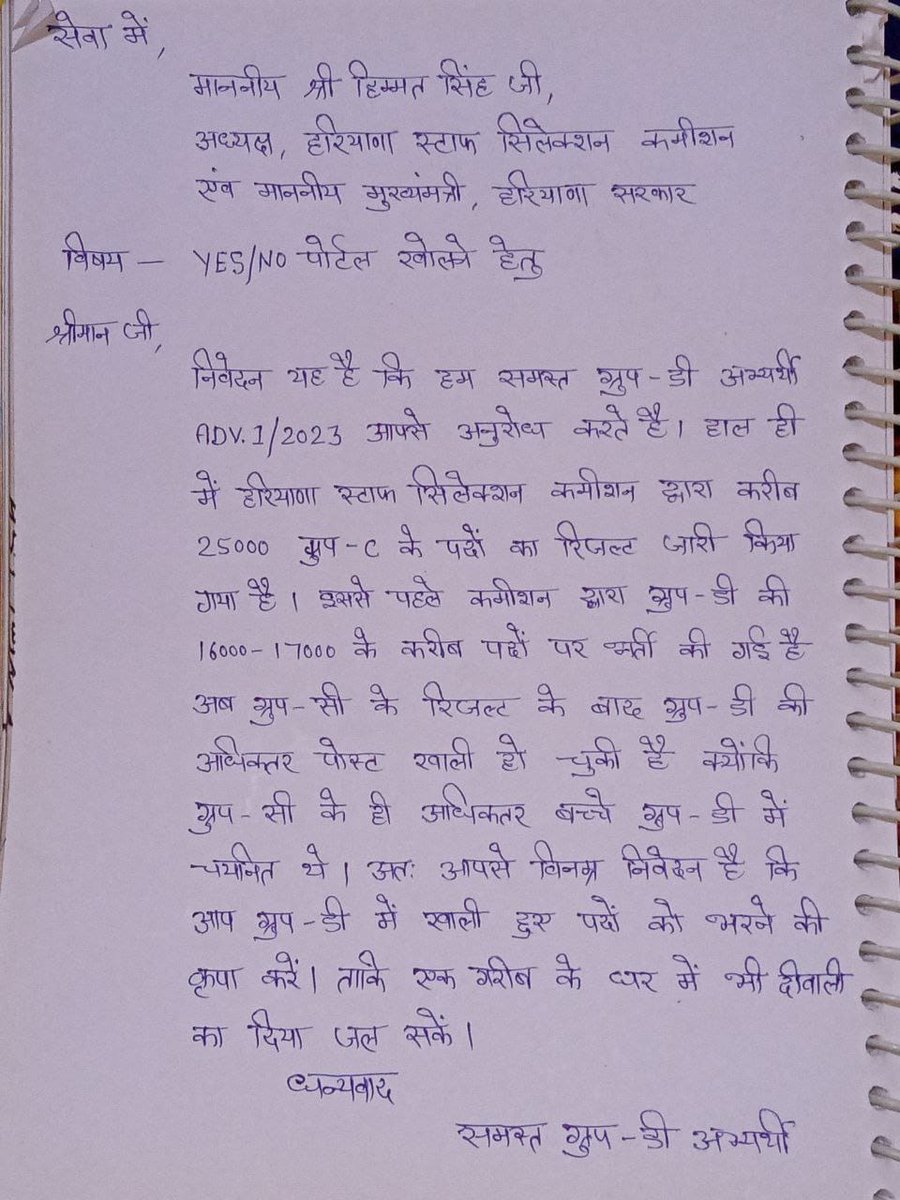 सेवा में,
माननीय श्री हिम्मत सिंह जी,
अध्यक्ष, हरियाणा स्टाफ सिलेक्शन कमीशन
एंव माननीय मुख्यंमत्री, हरियाणा सरकार
विषय – YES/NO पोर्टल खोलने हेतु
श्रीमान जी,
निवेदन यह है कि हम समस्त ग्रुप-डी अभ्यर्थी
ADV.1/2023 आपसे अनुरोध करते है। हाल ही
में हरियाणा स्टाफ सिलेक्शन कमीशन द्वारा करीब
25000 ग्रुप-C के पदों का रिजल्ट जारी किया
गया है। इससे पहले कमीशन द्वारा ग्रुप-डी की
16000-17000 के करीब पदों पर भर्ती की गई है
अब ग्रुप-सी के रिजल्ट के बाद ग्रुप-डी की
अधिकतर पोस्ट खाली हो चुकी है क्योंकि
ग्रुप-सी के ही अधिकतर बच्चे ग्रुप-डी में
चयनित थे। अतः आपसे विनम्र निवेदन है कि
आप ग्रुप-डी में खाली हुए पदों को भरने की
कृपा करें। ताकि एक गरीब के घर में भी दीवाली
का दिया जल सकें।
धन्यवाद
समस्त ग्रुप-डी अभ्यर्थी